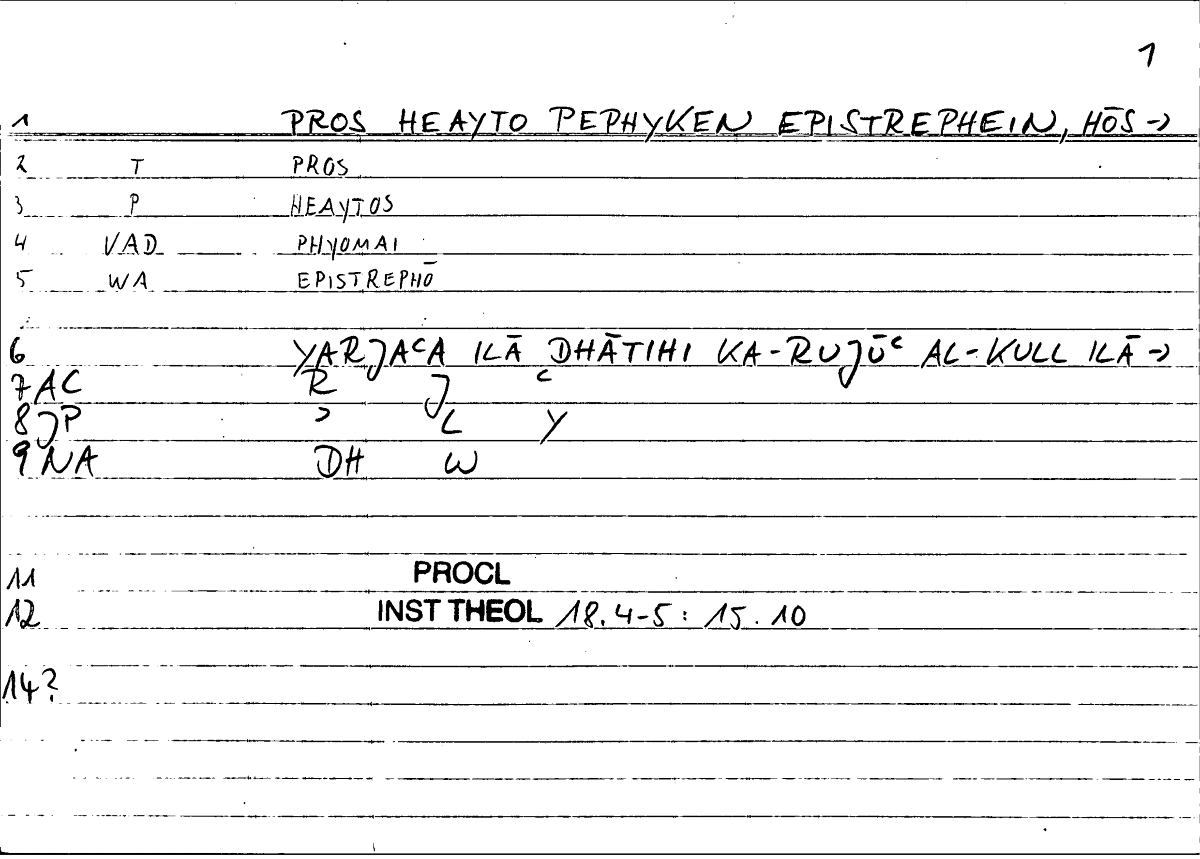 1
1 PROS HEAYTO PEPHYKEN EPISTREPHEIN, HŌS →
2 T PROS
3 P HEAYTOS
4 VAD PHYOMAI
5 WA EPISTREPHŌ
6 YARJAᶜA ILĀ DHĀTIHI KA-RUJŪᶜ AL-KULL ILĀ →
7 AC R J ᶜ
8 JP ʾ L Y
9 NA DH W
11 PROCL
12 INST THEOL 18.4-5 : 15.10
14?